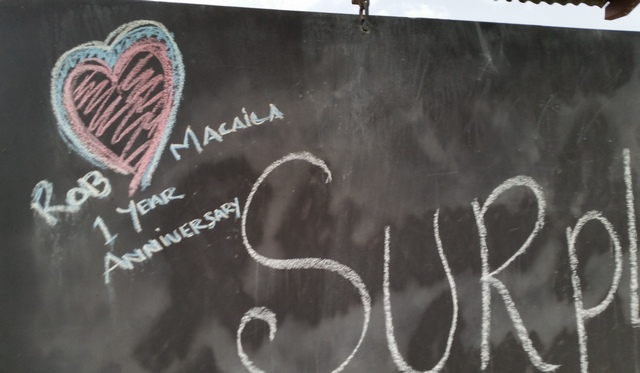 Rob Macaila
1 Year
Anniversary
SURPL